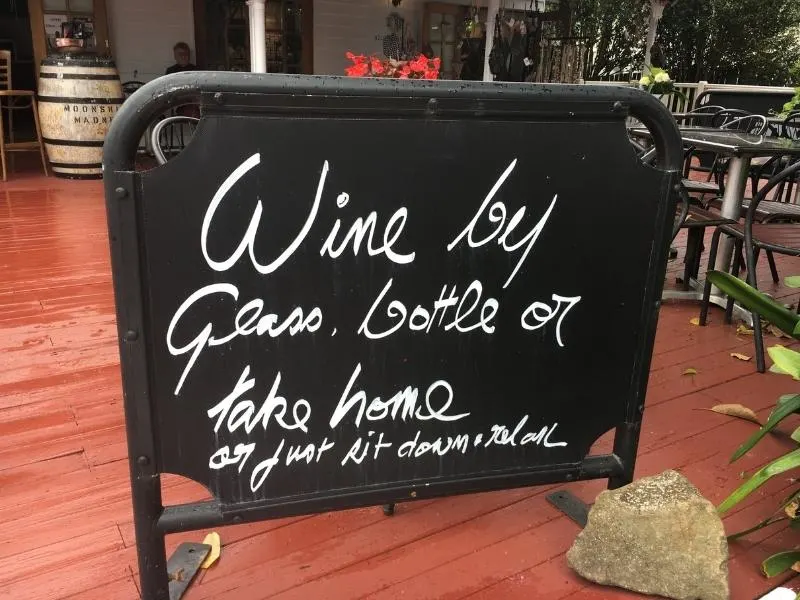 MOONSHI
MADNE
Wine by
Glass, bottle or
take home
or just sit down & relax